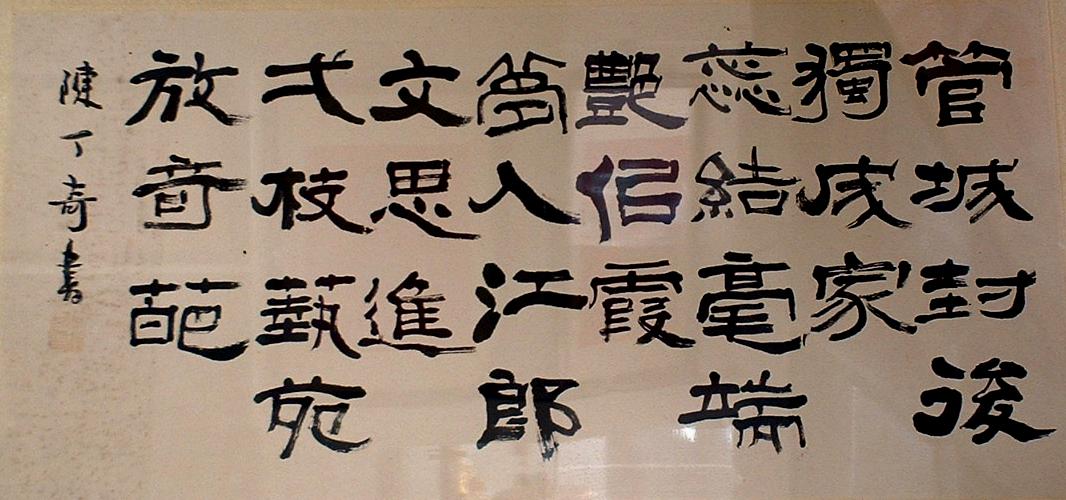 管城封後
獨成家
蕊結毫端
豔佀霞
夢入江郎
文思進
弌枝藝苑
放竒葩
陳丁奇書